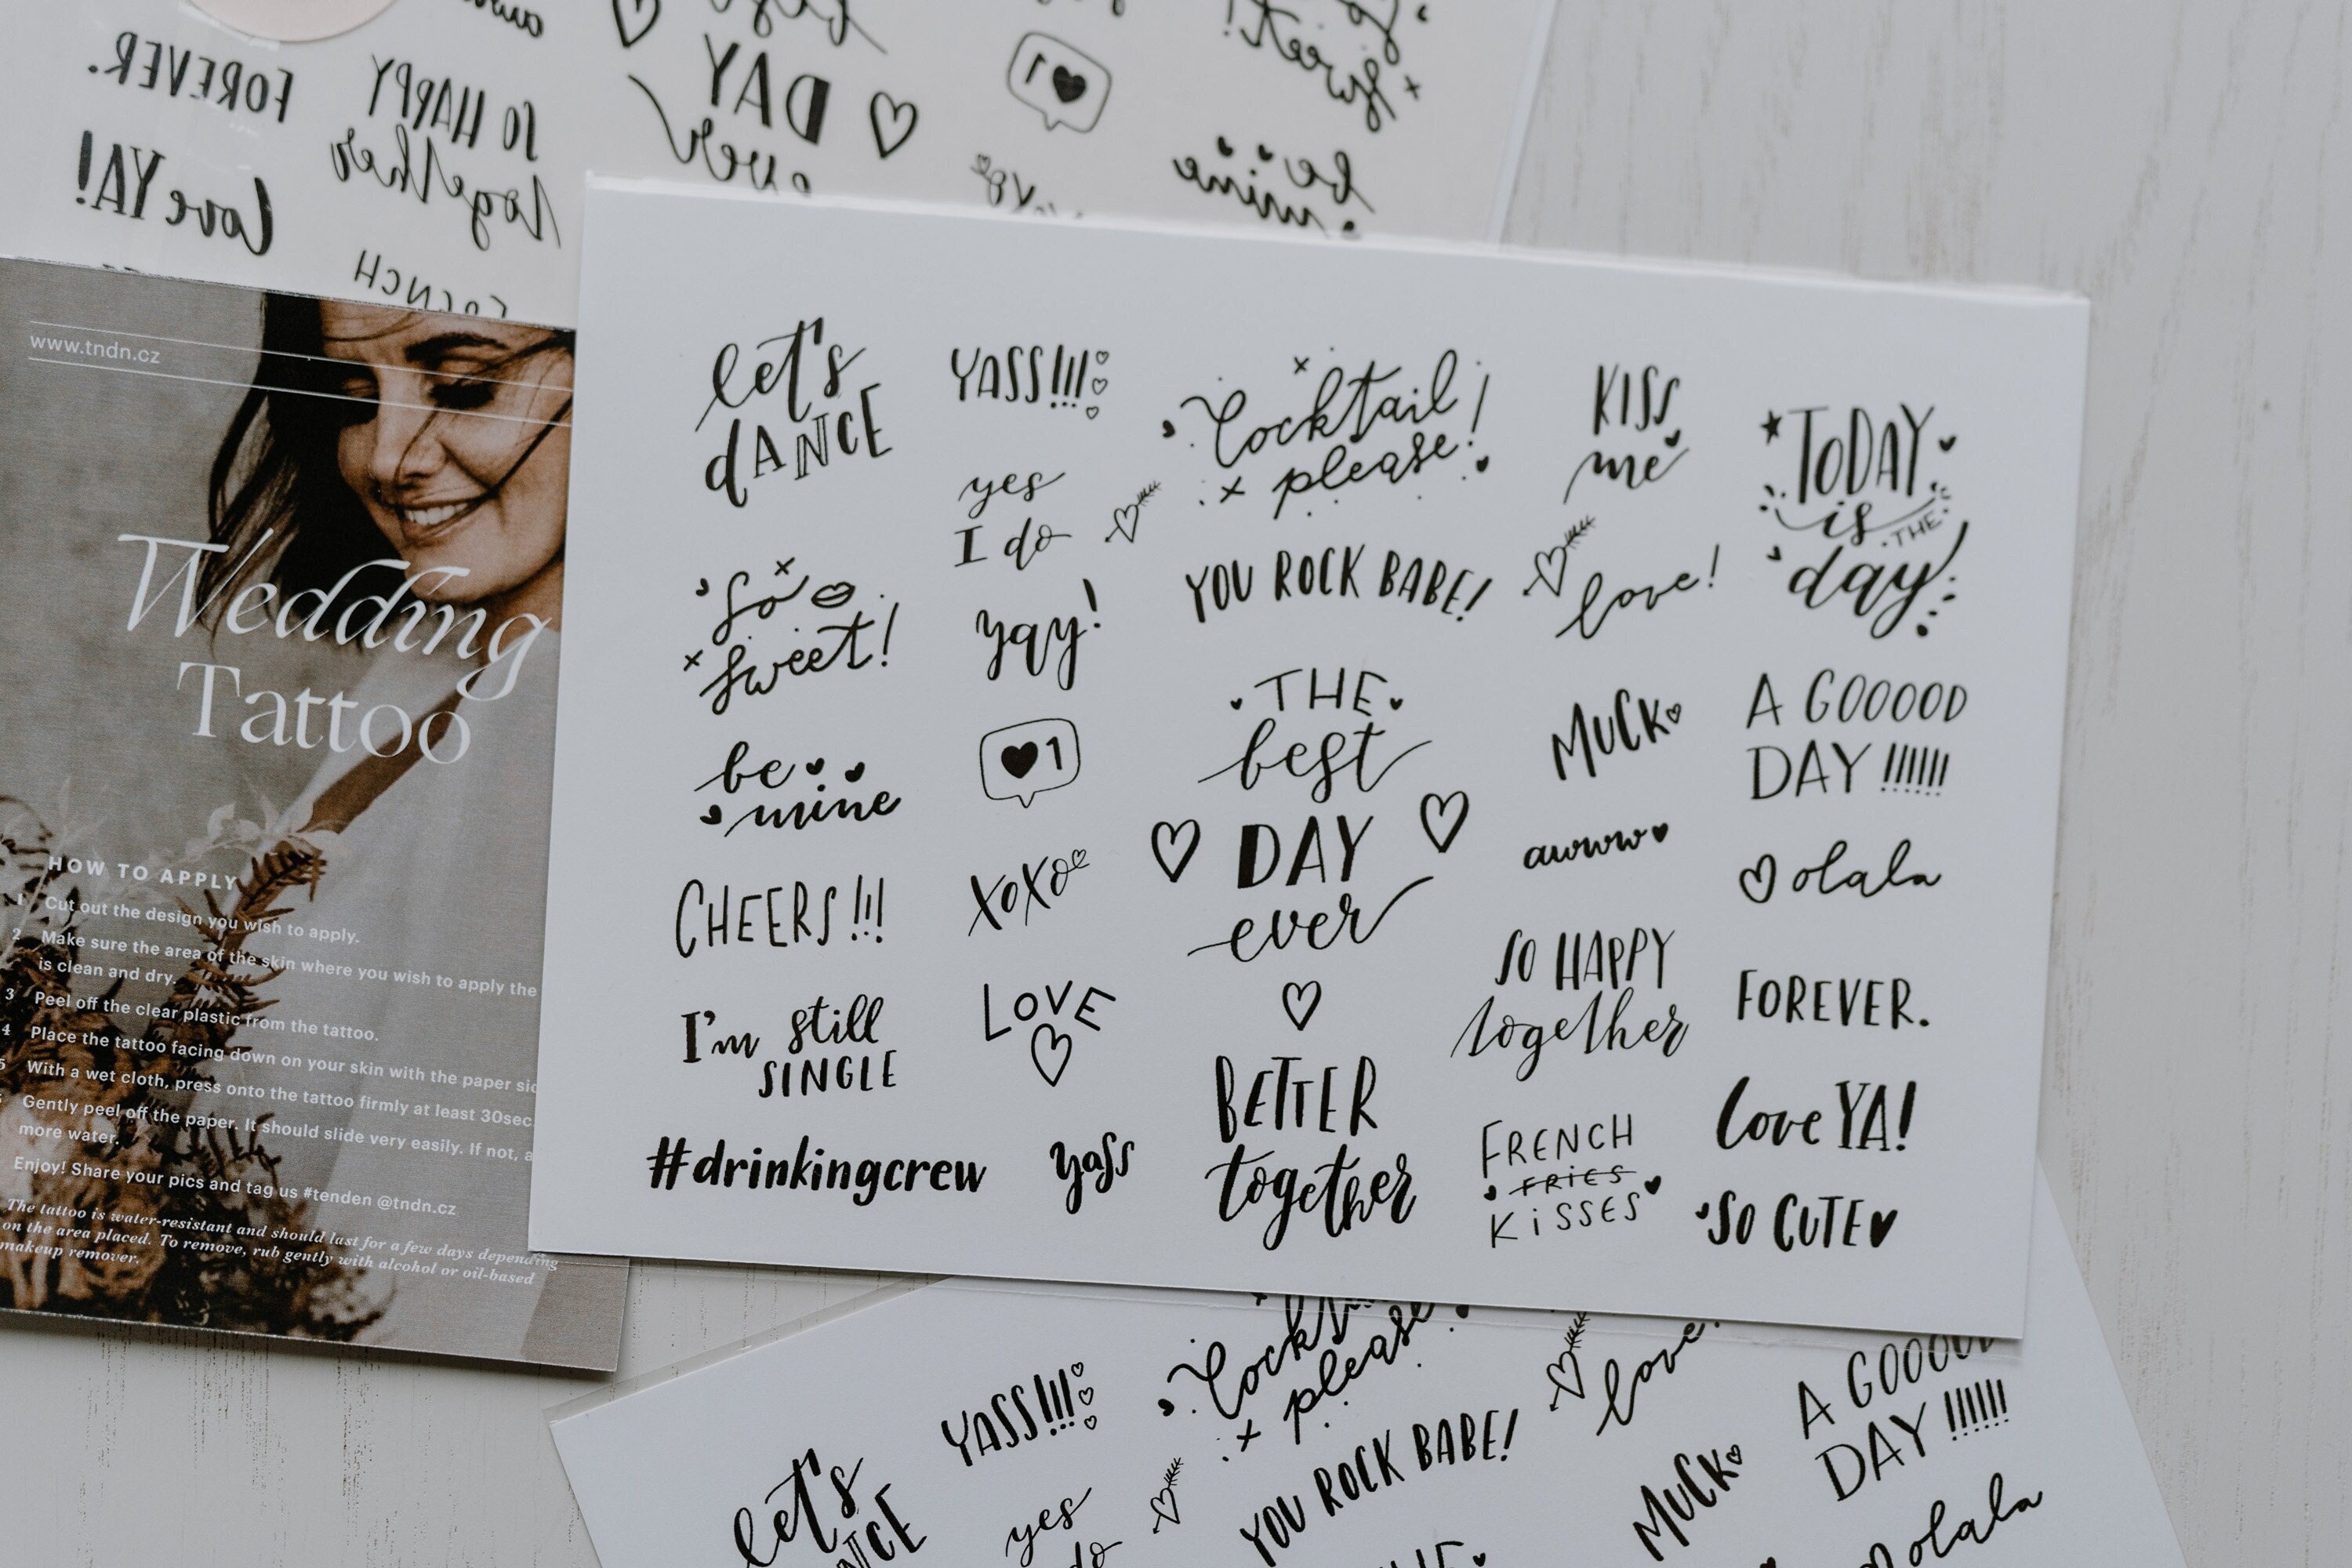 FOREVER.
SO HAPPY
together
love YA!
FRENCH
DAY
ever
1
be
mine
sweet!
www.tndn.cz
Wedding
Tattoo
HOW TO APPLY
1 Cut out the design you wish to apply.
2 Make sure the area of the skin where you wish to apply the
is clean and dry.
3 Peel off the clear plastic from the tattoo.
4 Place the tattoo facing down on your skin with the paper
5 With a wet cloth, press onto the tattoo firmly at least 30sec.
Gently peel off the paper. It should slide very easily. If not,
more water.
Enjoy! Share your pics and tag us #tenden @tndn.cz
The tattoo is water-resistant and should last for a few days depending
on the area placed. To remove, rub gently with alcohol or oil-based
makeup remover.
let's
dANCE
YASS!!!
Cocktail
please!
KISS
me
TODAY
is
THE
day
yes
I do
so
sweet!
yay!
YOU ROCK BABE!
love!
be
mine
1
THE
best
DAY
ever
MUCK
A GOOOOD
DAY !!!!!!
CHEERS!!!
xoxo
awww
olala
I'm still
SINGLE
LOVE
SO HAPPY
together
FOREVER.
#drinkingcrew
yass
BETTER
together
FRENCH
FRiES
KiSSES
love YA!
SO CUTE
YASS!!!
please
love!
A GOOOO
DAY !!!!!!
let's
yes
do
YOU ROCK BABE!
MUCK
olala